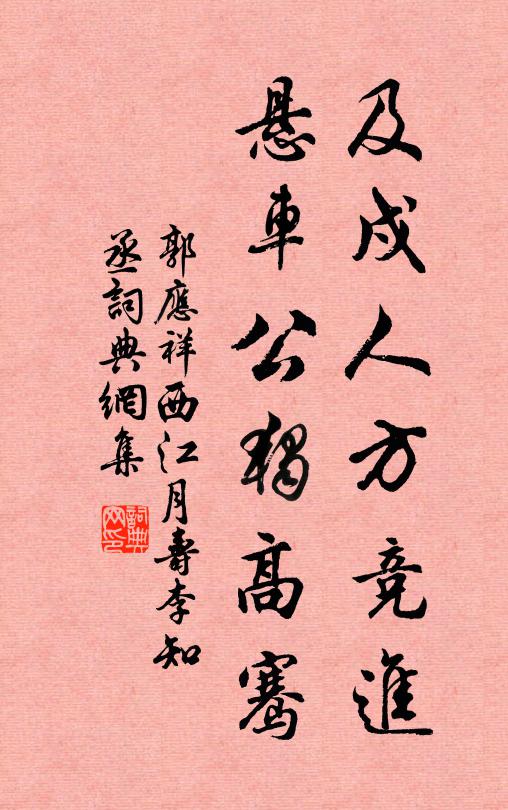 及戍人方竞進
悬車公獨高騫
郭應祥西江月壽李知
丞詞典網集
詞典
网印